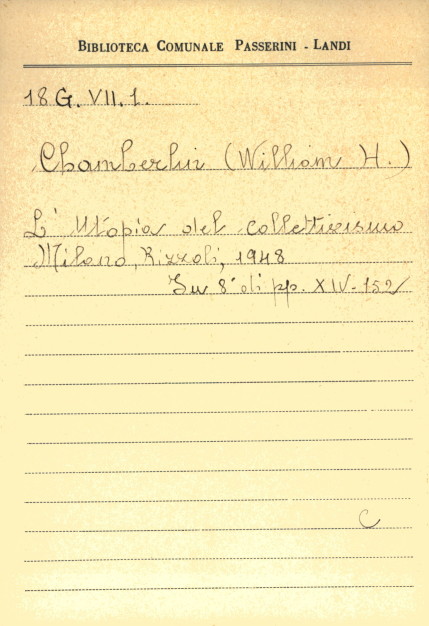 BIBLIOTECA COMUNALE PASSERINI - LANDI
18 G. VII. 1.
Chamberlin (William H.)
L' Utopia del collettivismo
Milano, Rizzoli, 1948
In 8° di pp. XIV-152
C